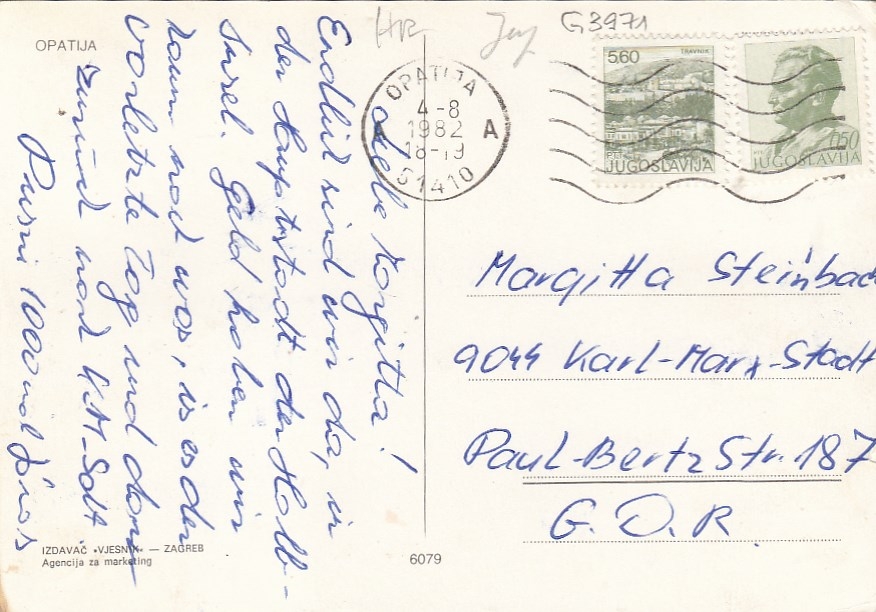 OPATIJA
HR
Jug
G3971
OPATIJA
4-8
1982
18-19
51410
A A
5,60
TRAVNIK
JUGOSLAVIJA
0,50
JUGOSLAVIJA
Liebe Margitta!
Endlich sind wir da, in
der Hauptstadt der Halb-
insel. Geld haben wir
kaum noch was, is es der
vorletzte Tag und dann
zurück nach K.M-Stdt.
1000 mal
Margitta Steinbac
9044 Karl-Marx-Stadt
Paul-Bertz Str. 187
G.D.R.
IZDAVAČ »VJESNIK« — ZAGREB
Agencija za marketing
6079